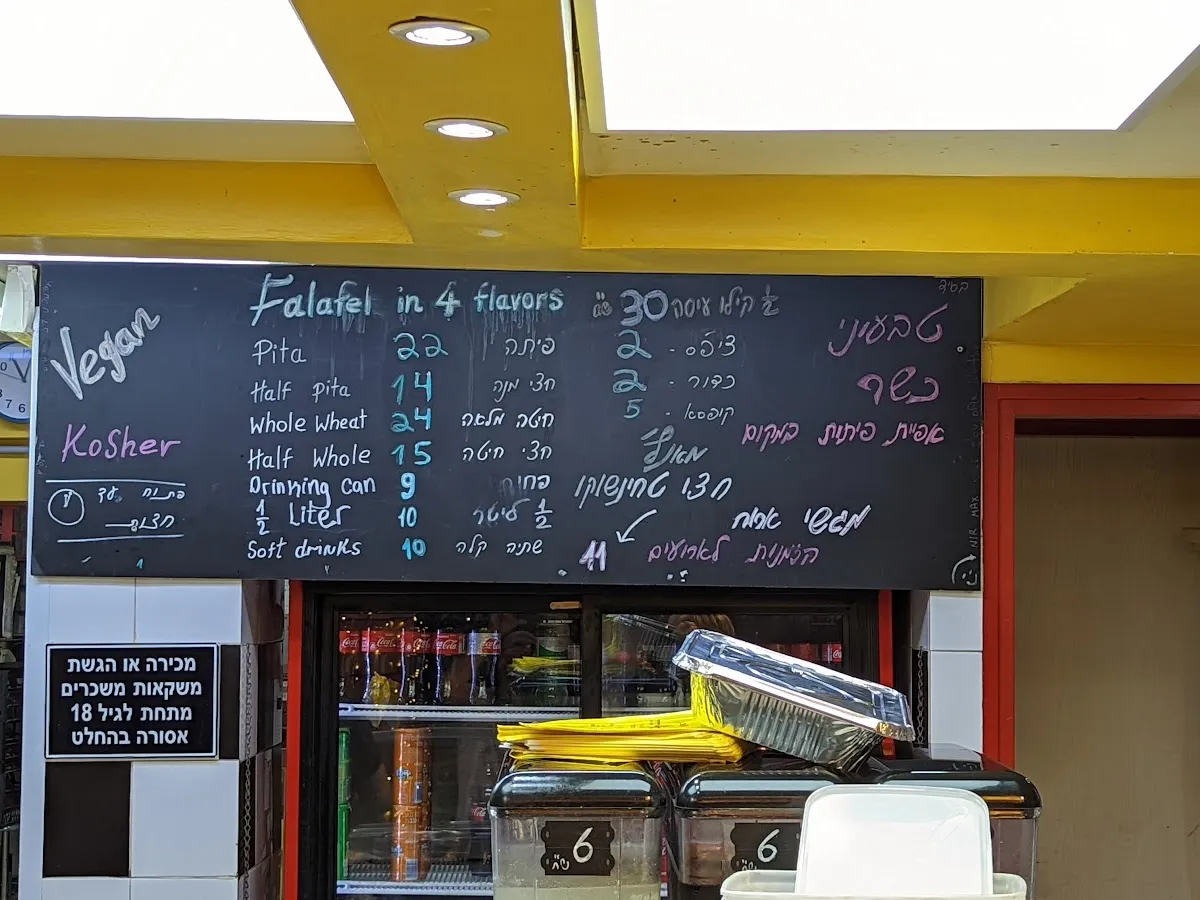 Vegan
Kosher
פתוח עד
חצות
Falafel in 4 flavors
Pita 22 פיתה
Half pita 14 חצי מנה
Whole Wheat 24 חיטה מלאה
Half Whole 15 חצי חיטה
Drinking can 9 פחית
1/2 Liter 10 1/2 ליטר
Soft drinks 10 שתיה קלה
1/2 קילו עיסה 30 ש"ח
ציפס - 2
כדור - 2
קופסא - 5
חצי
11
טבעוני
כשר
אפיית פיתות במקום
מגשי אירוח
הזמנות לארועים
NIR MAX
מכירה או הגשת
משקאות משכרים
מתחת לגיל 18
אסורה בהחלט
Coca-Cola
6 ש"ח
6 ש"ח